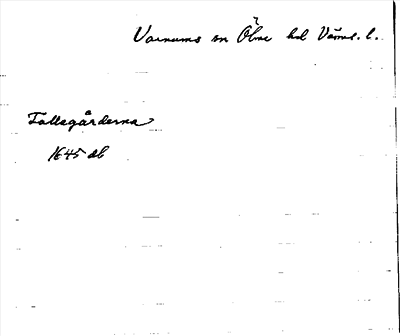 Varnums sn Ölme hd Värml. l.
Tollsgårderna
1645 db